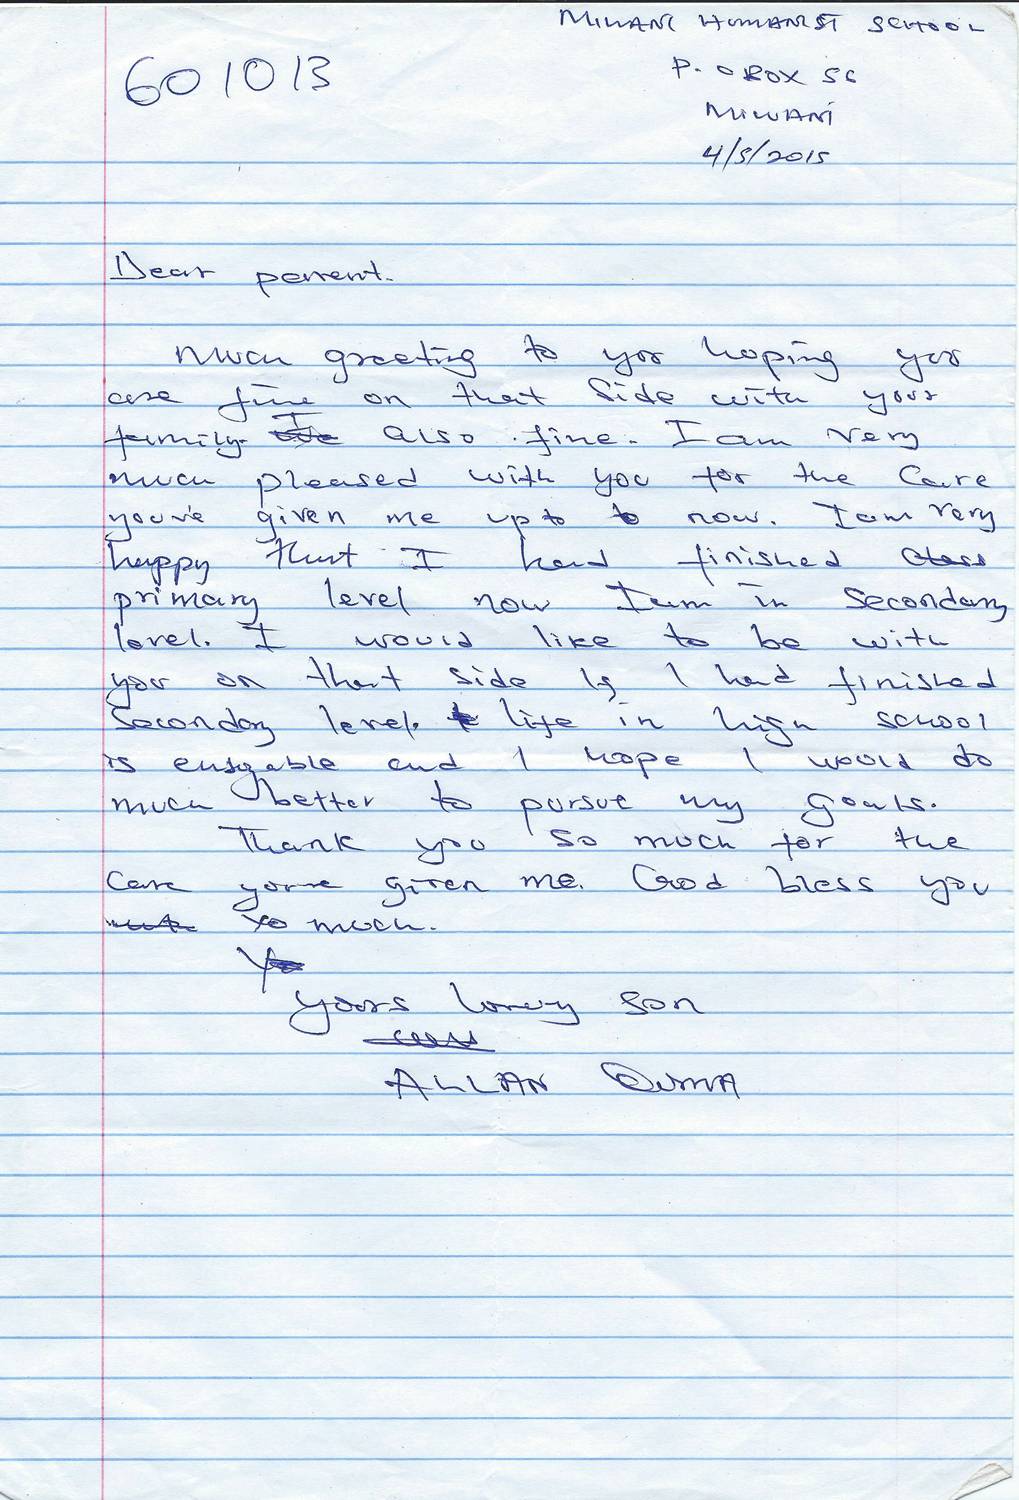 MIWANI HUMANIST SCHOOL
601013
P.O BOX 56
MIWANI
4/5/2015
Dear perrent.
Much greeting to you hoping you
are fine on that side with your
family. I also fine. I am very
much pleased with you for the care
you've given me upto to now. I am very
happy that I had finished class
primary level now I am in secondary
level. I would like to be with
you on that side is I had finished
Secondary level. life in high school
is enjyable and I hope I would do
much better to pursue my goals.
Thank you so much for the
care you've given me. God bless you
so much.
Yours loney son
ALLAN OUMA